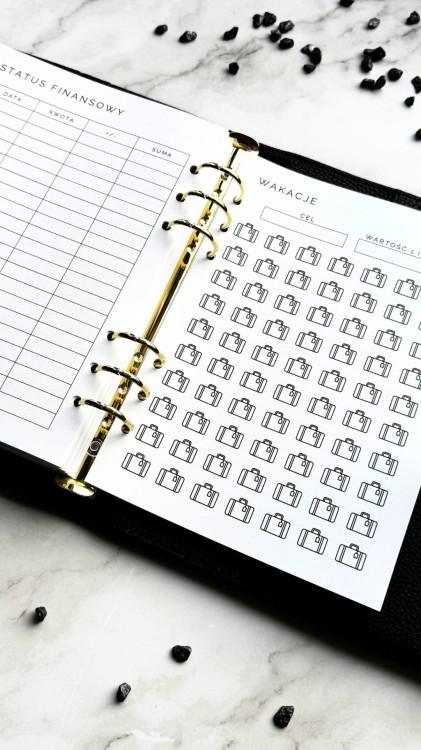 STATUS FINANSOWY
DATA KWOTA +/- SUMA
WAKACJE
CEL
WARTOŚĆ 1